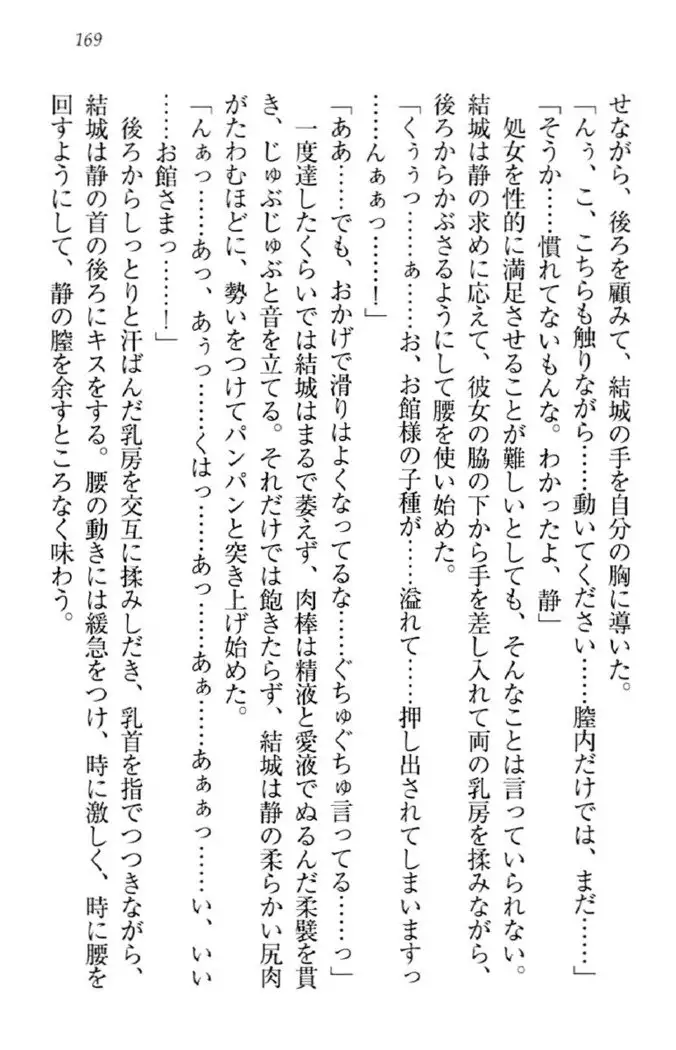 169
せながら、後ろを顧みて、結城の手を自分の胸に導いた。
「んぅ、こ、こちらも触りながら……動いてください……膣内だけでは、まだ……」
「そうか……慣れてないもんな。わかったよ、静」
処女を性的に満足させることが難しいとしても、そんなことは言っていられない。
結城は静の求めに応えて、彼女の脇の下から手を差し入れて両の乳房を揉みながら、
後ろからかぶさるようにして腰を使い始めた。
「くぅぅっ……ぁ……お、お館様の子種が……溢れて……押し出されてしまいますっ
……んぁぁっ……!」
「ああ……でも、おかげで滑りはよくなってるな……ぐちゅぐちゅ言ってる……っ」
一度達したくらいでは結城はまるで萎えず、肉棒は精液と愛液でぬるんだ柔襞を貫
き、じゅぶじゅぶと音を立てる。それだけでは飽きたらず、結城は静の柔らかい尻肉
がたわむほどに、勢いをつけてパンパンと突き上げ始めた。
「んぁっ……あっ、あぅっ……くはっ……あっ……あぁ……あぁぁっ……い、いい
……お館さまっ……!」
後ろからしっとりと汗ばんだ乳房を交互に揉みしだき、乳首を指でつつきながら、
結城は静の首の後ろにキスをする。腰の動きには緩急をつけ、時に激しく、時に腰を
回すようにして、静の膣を余すところなく味わう。